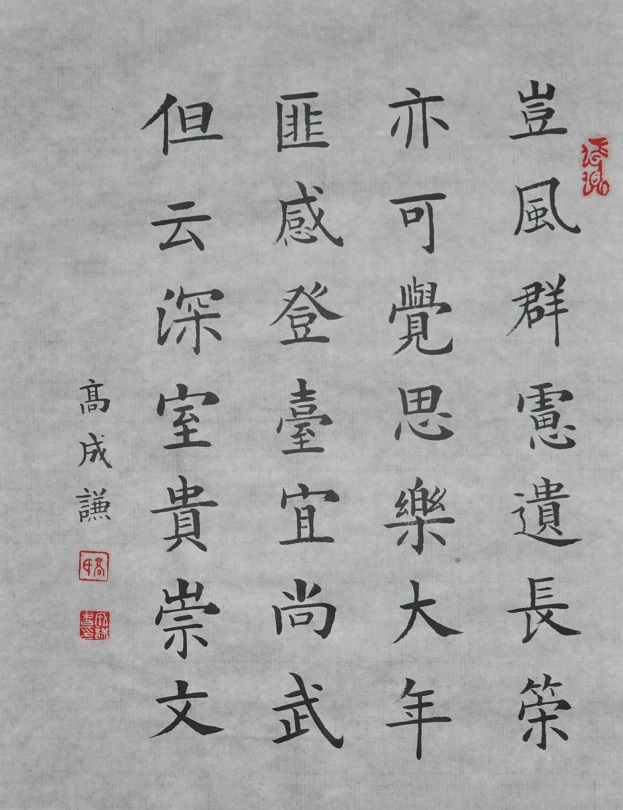 豈風群慮遺長筞
亦可覺思樂大年
匪感登臺宜尚武
但云深室貴崇文
髙成謙